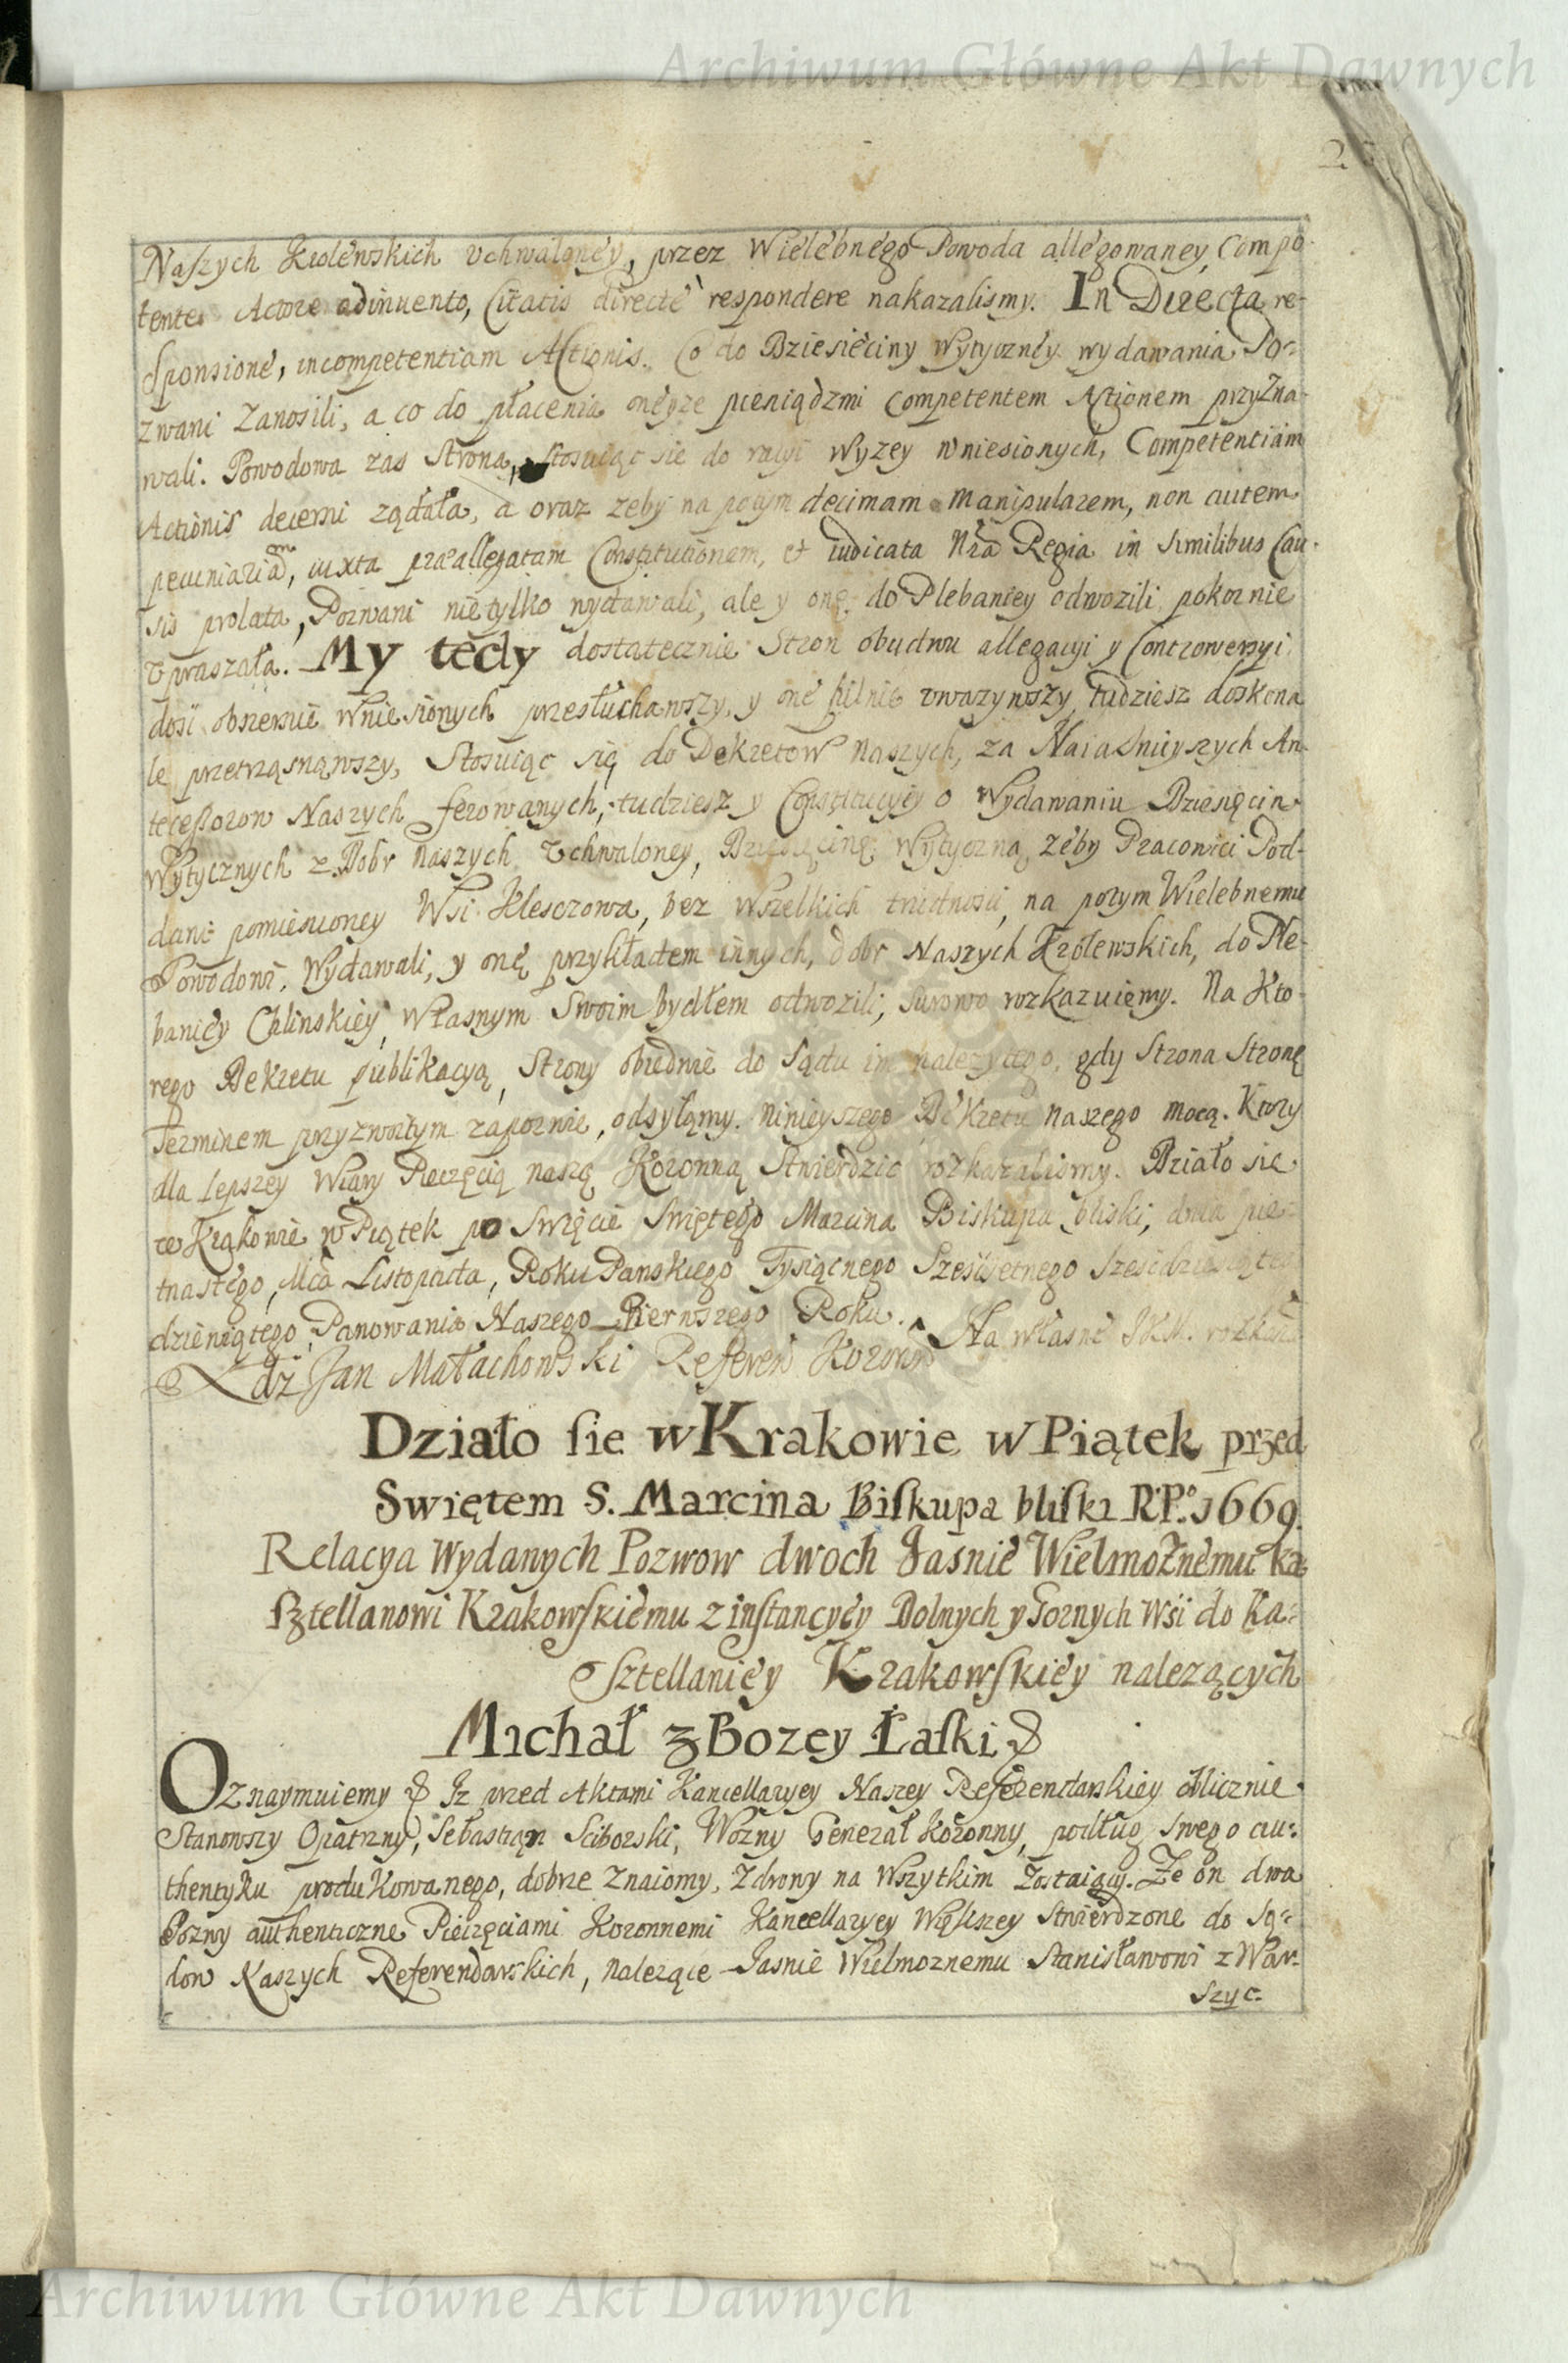 Archiwum Główne Akt Dawnych
Naszych Krolewskich vchwaloney, przez Wielebnego Powoda allegowaney, Compe-
tente Actore adinuento, Citatis directè respondere nakazalismy. In Directa re-
sponsione, incompetentiam Actionis. Co do Dziesięciny wytyczney wydawania Po-
zwani Zanosili, a co do płacenia oneyze pieniądzmi Competentem Actionem przyzna-
wali. Powodowa zas Strona, Stosuiąc sie do racyi wyzey wniesionych, Competentiam
Actionis decerni ządała, a oraz zeby na potym decimam manipularem, non autem
pecuniariam, iuxta præallegatam Constitutionem, et iudicata Nra Regia in similibus Cau-
sis prolata, Pozwani nie tylko wydawali, ale y onę do Plebaniey odwozili pokornie
vpraszała. My tedy dostatecznie Stron obudwu allegacyi y Controwersyi
dosc obszernie wniesionych przesłuchawszy, y one pilnie vwazywszy, tudziesz doskona
le przetrząsnąwszy, Stosuiąc się do Dekretow Naszych, za Naiasnieyszych An-
tecessorow Naszych ferowanych, tudziesz y Constitucyey o Wydawaniu Dziesięcin
Wytycznych z Dobr Naszych vchwaloney, Dziesięcinę Wytyczną, zeby Pracowici Pod-
dani pomienioney Wsi Kleszczowa, bez wszelkich trudnosci, na potym Wielebnemu
Powodowi, wydawali, y onę przykładem innych, dobr Naszych Krolewskich, do Ple-
baniey Chlinskiey, własnym Swoim bydłem odwozili, surowo rozkazuiemy. Na Kto-
rego Dekretu publikacyą, Strony obiedwie do Sądu im nalezytego, gdy Strona Stronę
Terminem przyzwoitym zapozwie, odsyłamy. ninieyszego Dekretu naszego mocą. Ktory
dla lepszey Wiary Pieczęcią naszą Koronną Stwierdzic rozkazalismy. Działo sie
w Krakowie w Piątek po Swięcie Swiętego Marcina Biskupa bliski, dnia pię-
tnastego, Mca Listopada, Roku Panskiego Tysiącnego Szescsetnego Szescdziesiątego
dziewiątego, Panowania Naszego Pierwszego Roku. Na własne JKM. rozkaz
Xdz Jan Małachowski Referen Koronn
Działo sie w Krakowie w Piątek przed
Swiętem S. Marcina Biskupa bliski R.P. 1669.
Relacya Wydanych Pozwow dwoch Jasnie Wielmoznemu Ka-
sztellanowi Krakowskiemu z instancyey Dolnych y Gornych Wsi do Ka-
sztellaniey Krakowskiey nalezących
Michał z Bozey Łaski &
Oznaymuiemy & Jz przed Aktami Kancellaryey Naszey Referendarskiey oblicznie
Stanowszy Opatrzny, Sebastyan Sciborski, Wozny Generał Koronny, podług swego au-
thentyku produkowanego, dobrze znaiomy, zdrowy na wszytkim zostaiący. Ze on dwa
Pozwy authenticzne Pieczęciami Koronnemi Kancellaryey Większey Stwierdzone do Są-
dow Naszych Referendarskich, nalezące Jasnie Wielmoznemu Stanisławowi z War-
szyc-
Archiwum Główne Akt Dawnych